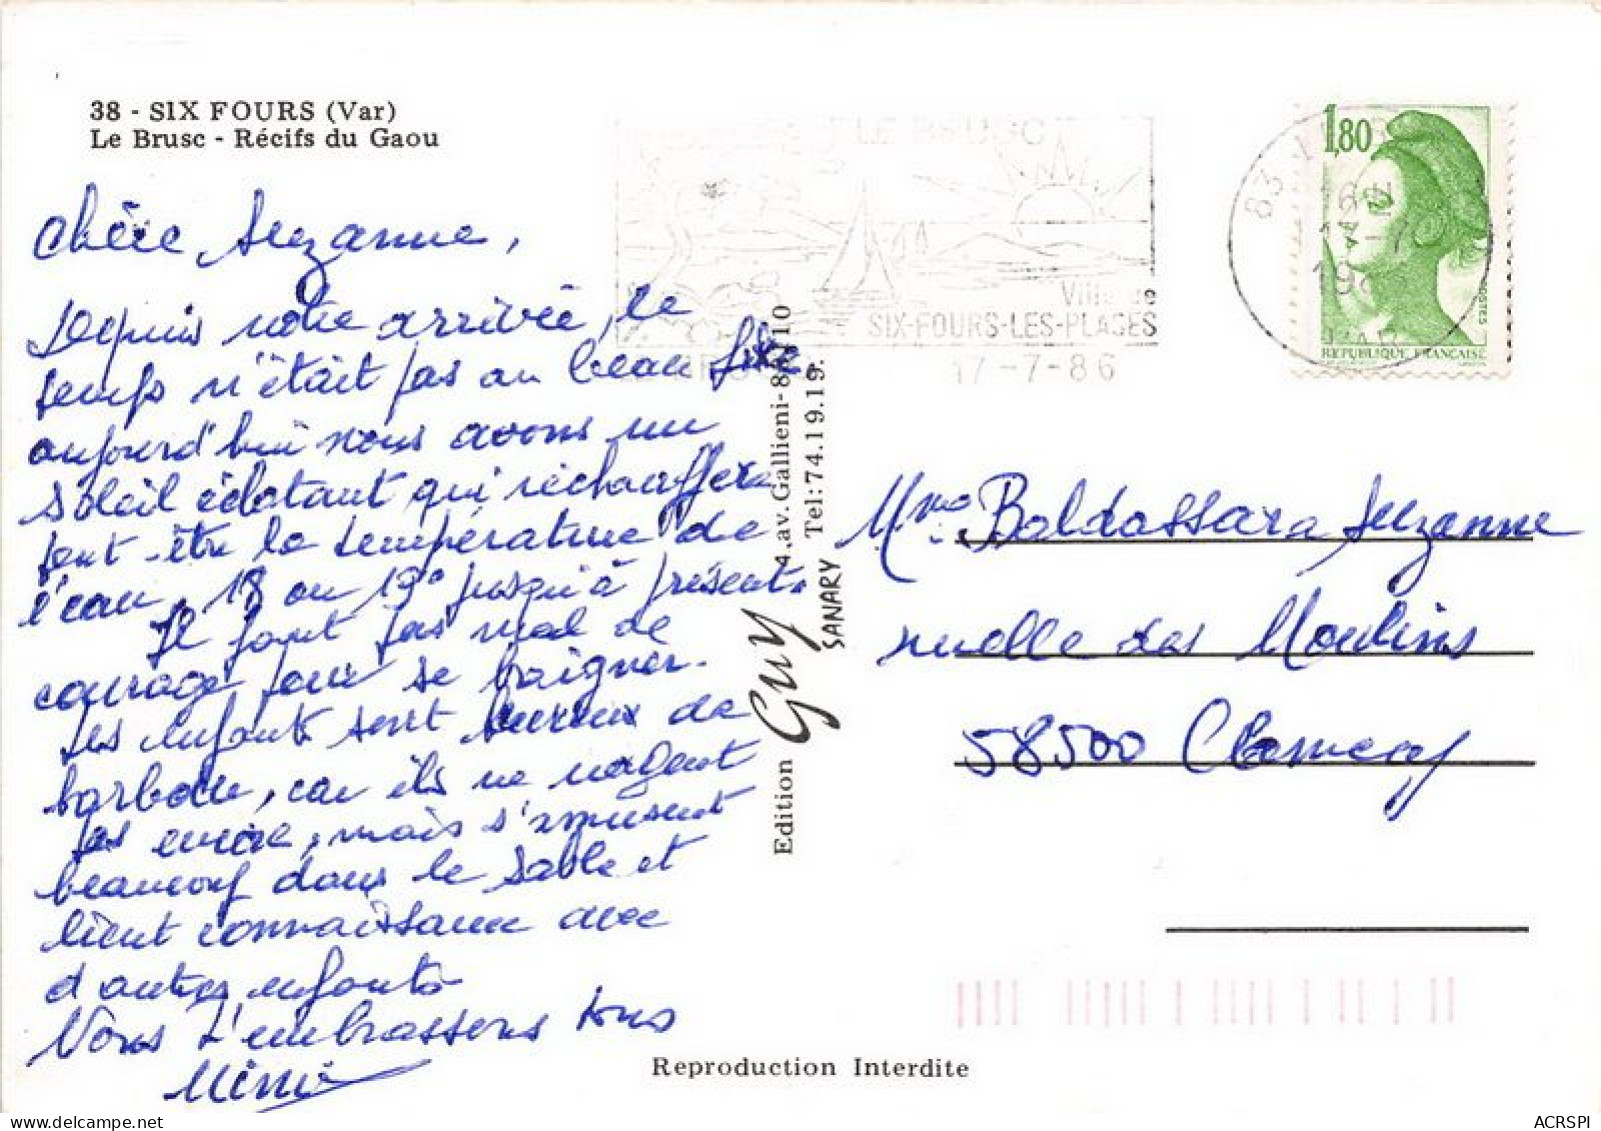 38 - SIX FOURS (Var)
Le Brusc - Récifs du Gaou
Chère Suzanne,
Depuis notre arrivée, le
temps n'était pas au beau fixe
aujourd'hui nous avons un
soleil éclatant qui réchauffera
peut-être la température de
l'eau, 18 ou 19° jusqu'à présent.
Il faut pas mal de
courage pour se baigner.
Les enfants sont heureux de
barboter, car ils ne nagent
pas encore, mais s'amusent
beaucoup dans le sable et
lient connaissance avec
d'autres enfants
Nous t'embrassons tous
Mimi
LE BRUSC
Ville de
SIX-FOURS-LES-PLAGES
17-7-86
1,80
POSTES
REPUBLIQUE FRANÇAISE
83
Edition Guy 4, av. Gallieni-83110
SANARY Tel: 74.19.19.
Mme Baldassara Suzanne
ruelle des Moulins
58500 Clamecy
Reproduction Interdite
ACRSPI